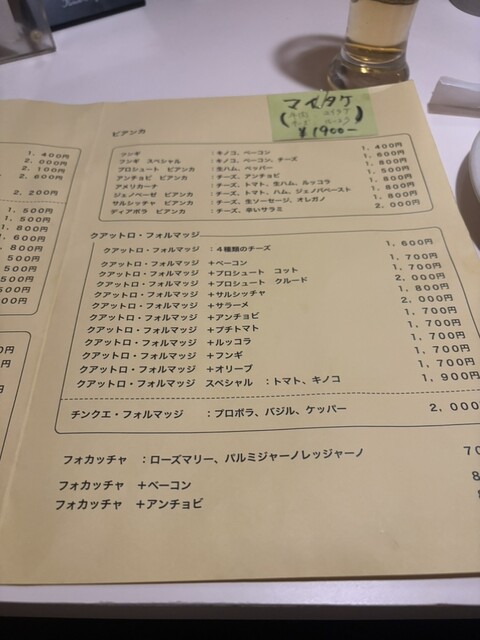 1,400円
2,000円
2,100円
2,600円
2,200円
1,500円
1,500円
1,800円
1,600円
ビアンカ
マイタケ
¥1900-
フンギ ：キノコ、ベーコン 1,400円
フンギ スペシャル ：キノコ、ベーコン、チーズ 1,600円
プロシュート ビアンカ ：生ハム、ペッパー 1,800円
アンチョビ ビアンカ ：チーズ、アンチョビ 1,500円
アメリカーナ ：チーズ、トマト、生ハム、ルッコラ 1,800円
ジェノベーゼ ビアンカ ：チーズ、トマト、ハム、ジェノバペースト 1,800円
サルシッチャ ビアンカ ：チーズ、生ソーセージ、オレガノ 1,800円
ディアボラ ビアンカ ：チーズ、辛いサラミ 2,000円
クアットロ・フォルマッジ
クアットロ・フォルマッジ ：４種類のチーズ 1,600円
クアットロ・フォルマッジ ＋ベーコン 1,700円
クアットロ・フォルマッジ ＋プロシュート コット 1,700円
クアットロ・フォルマッジ ＋プロシュート クルード 2,000円
クアットロ・フォルマッジ ＋サルシッチャ 1,800円
クアットロ・フォルマッジ ＋サラーメ 2,000円
クアットロ・フォルマッジ ＋アンチョビ 1,700円
クアットロ・フォルマッジ ＋プチトマト 1,700円
クアットロ・フォルマッジ ＋ルッコラ 1,700円
クアットロ・フォルマッジ ＋フンギ 1,700円
クアットロ・フォルマッジ ＋オリーブ 1,700円
クアットロ・フォルマッジ スペシャル ：トマト、キノコ 1,900円
チンクエ・フォルマッジ ：プロボラ、バジル、ケッパー 2,000
フォカッチャ ：ローズマリー、パルミジャーノレッジャーノ 70
フォカッチャ ＋ベーコン 8
フォカッチャ ＋アンチョビ